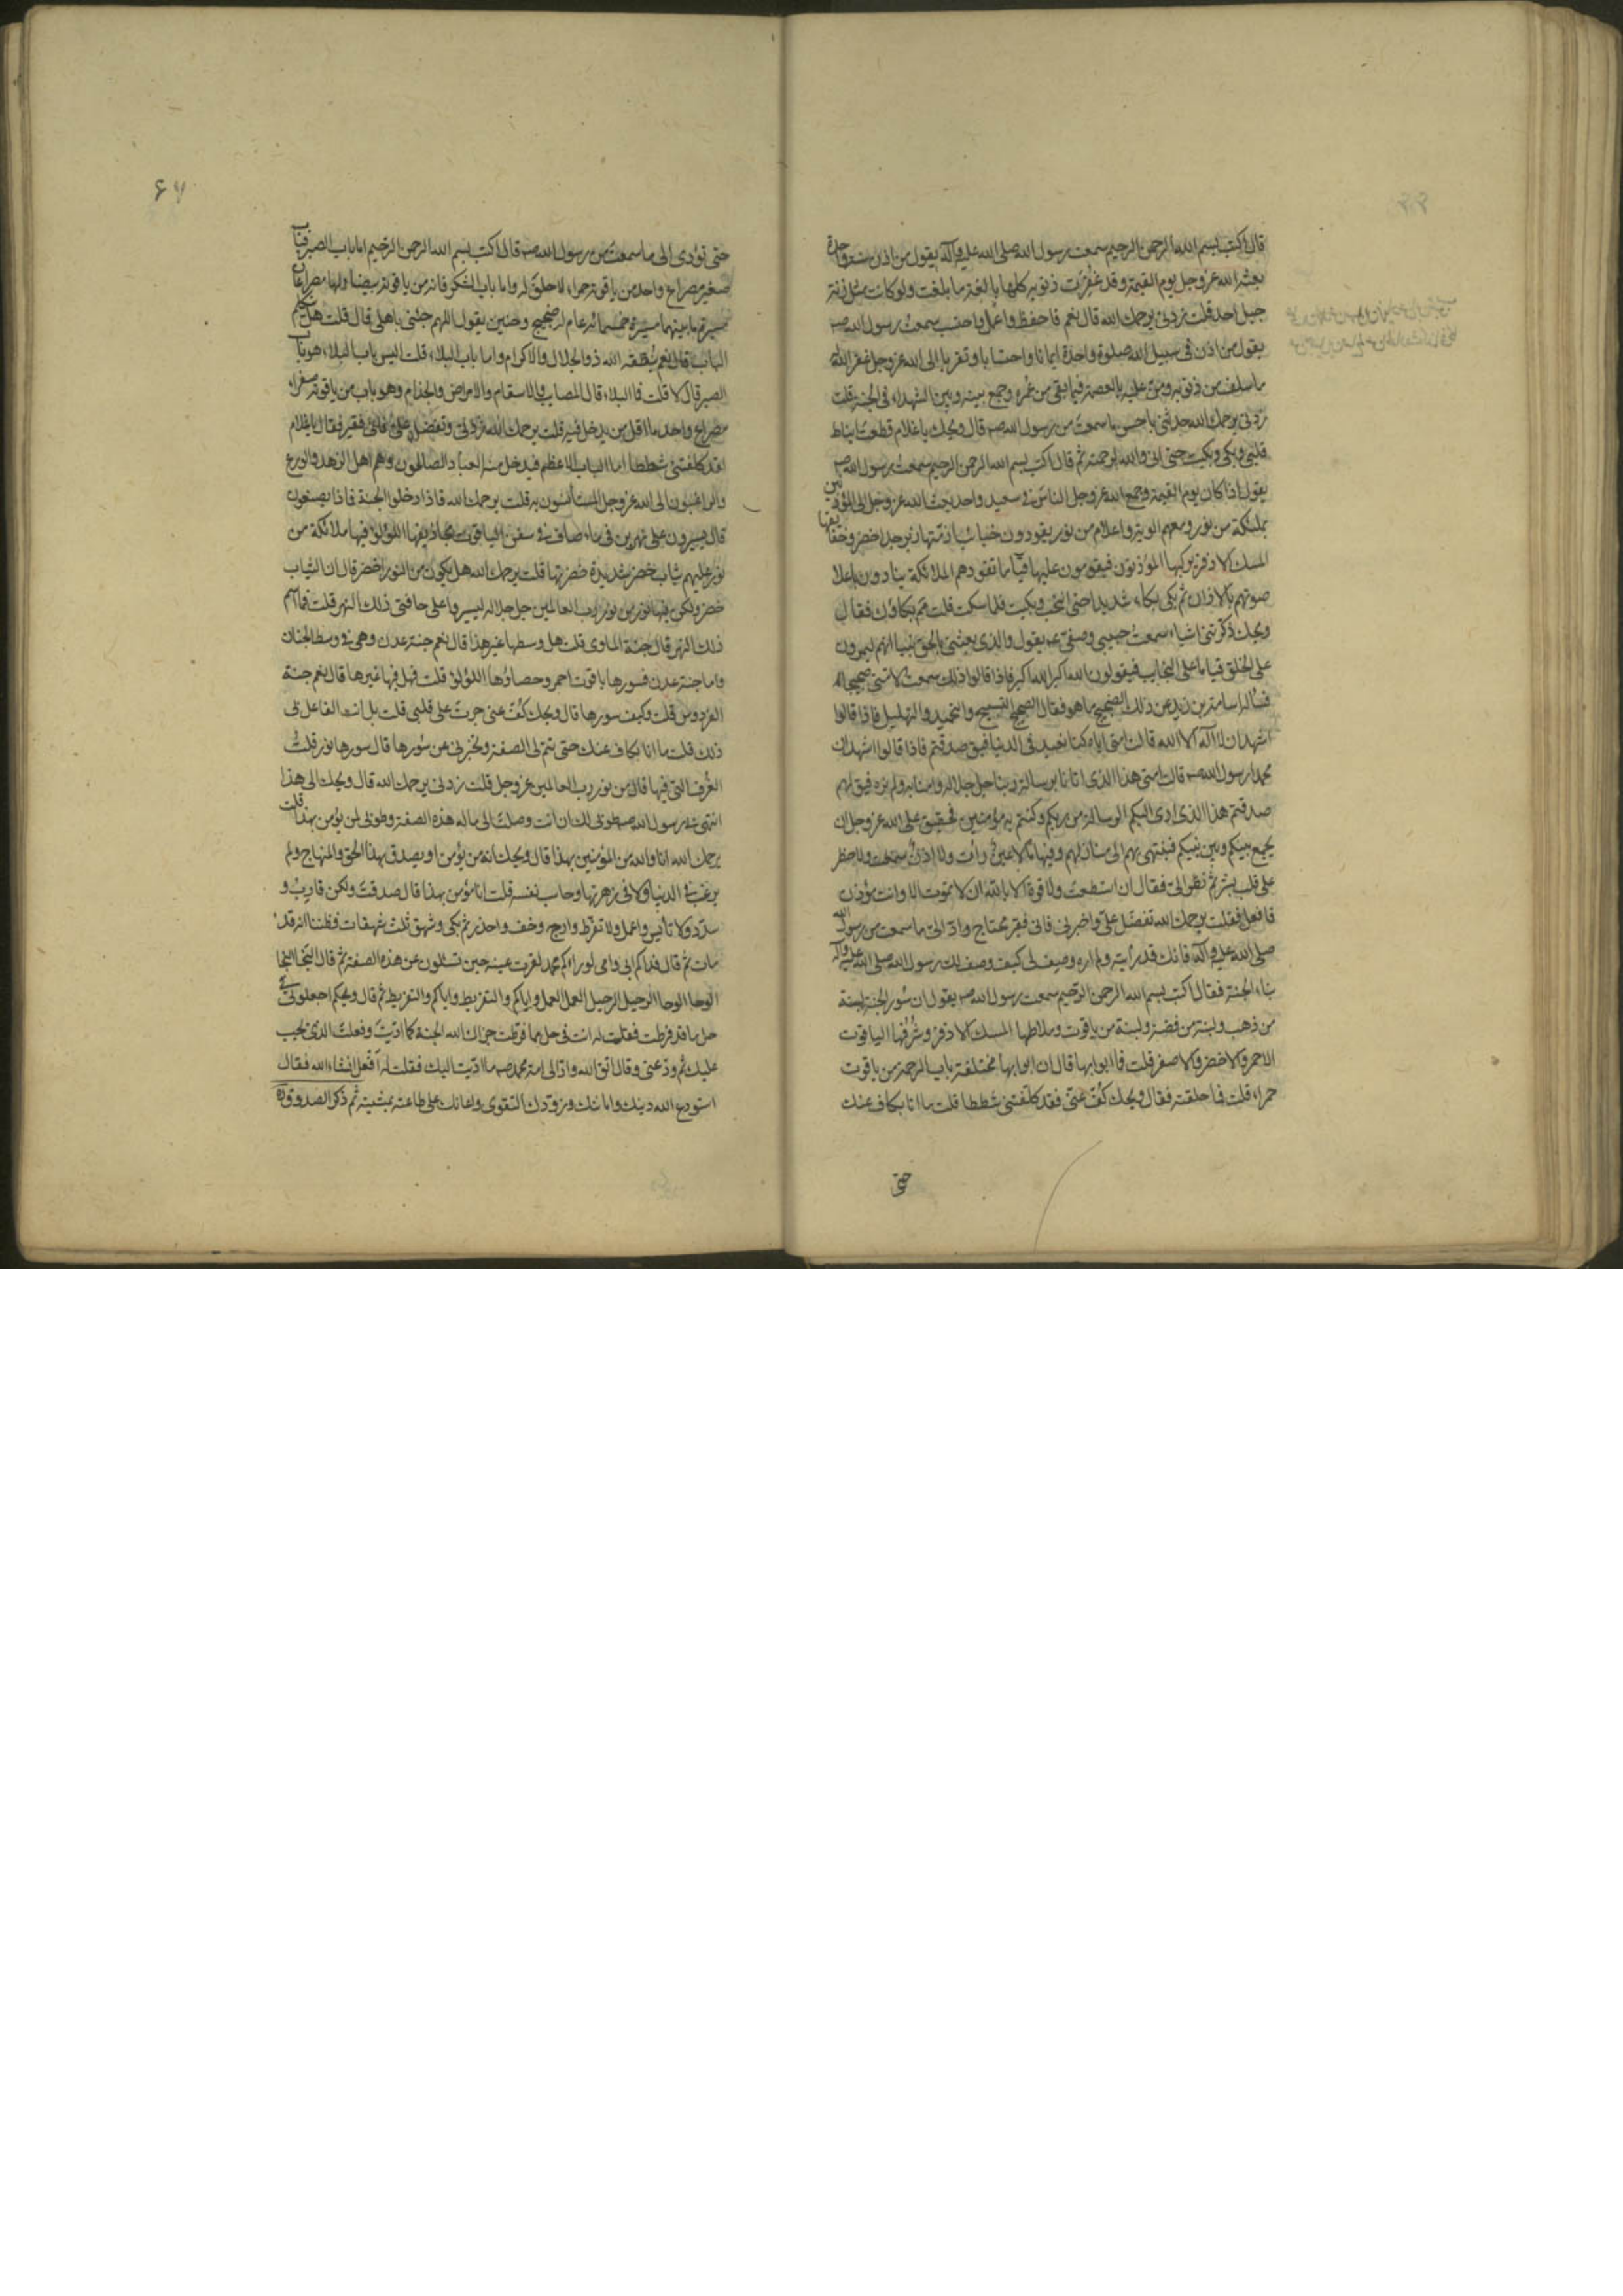 قال اكتب بسم الله الرحمن الرحيم سمعت رسول الله صلى الله عليه وآله يقول من اذن سنة واحدة
بعثه الله عز وجل يوم القيمة وقد غفرت ذنوبه كلها بالغة ما بلغت ولو كانت مثل زنة
جبل احد قلت زدنى يرحمك الله قال نعم فاحفظ واعمل واحتسب سمعت رسول الله صـ
يقول من اذن فى سبيل الله صلوة واحدة ايمانا واحتسابا وتقربا الى الله عز وجل غفر الله
ما سلف من ذنوبه ومن عليه بالعصمة فيما بقى من عمره وجمع بينه وبين الشهداء فى الجنة قلت
زدنى يرحمك الله حدثنى باحسن ما سمعت من رسول الله صـ قال ويحك يا غلام قطعت انياط
قلبى وبكى وبكيت حتى انى والله لرحمته ثم قال اكتب بسم الله الرحمن الرحيم سمعت رسول الله صـ
يقول اذا كان يوم القيمة وجمع الله عز وجل الناس فى سعيد واحد بعث الله عز وجل الى المؤذنين
بملئكة من نور ومعهم الوية واعلام من نور يقودون خبائب ازمتها زبرجد اخضر وخفايفها
المسك الاذفر يركبها المؤذنون فيقومون عليها قياما تقودهم الملائكة ينادون باعلا
صوتهم بالاذان ثم بكى بكاء شديدا حتى انتحب وبكيت فلما سكت قلت مم بكاؤك فقال
ويحك ذكرتنى اشياء سمعت حبيبى وصفيى عـ يقول والذى بعثنى بالحق نبيا انهم ليمرون
على الخلق قياما على النجائب فيقولون الله اكبر الله اكبر فاذا قالوا ذلك سمعت لامتى ضجيجا
فساله اسامة بن زيد عن ذلك الضجيج ما هو فقال الضجيج التسبيح والتحميد والتهليل فاذا قالوا
اشهد ان لا اله الا الله قالت امتى اياه كنا نعبد فى الدنيا فيق صدقتم فاذا قالوا اشهد ان
محمدا رسول الله صـ قالت امتى هذا الذى اتانا برسالة ربنا جل جلاله وامنا به ولم نره فيق لهم
صدقتم هذا الذى ادى اليكم الرسالة من ربكم وكنتم به مؤمنين فحقيق على الله عز وجل ان
يجمع بينكم وبين نبيكم فينتهى بهم الى منازلهم وفيها ما لا عين رأت ولا اذن سمعت ولا خطر
على قلب بشر ثم نظر الى فقال ان استطعت ولا قوة الا بالله ان لا تموت الا وانت مؤذن
فافعل فقلت يرحمك الله تفضل على واخبرنى فانى فقير محتاج واد الى ما سمعت من رسول الله
صلى الله عليه وآله فانك قد رأيته ولم اره وصف لى كيف وصف لك رسول الله صلى الله عليه وآله
بناء الجنة فقال اكتب بسم الله الرحمن الرحيم سمعت رسول الله صـ يقول ان سور الجنة لبنة
من ذهب ولبنة من فضة ولبنة من ياقوت وملاطها المسك الاذفر وشرفها الياقوت
الاحمر والاخضر والاصفر قلت فما ابوابها قال ان ابوابها مختلفة باب الرحمة من ياقوت
حمراء قلت فما حلقته فقال ويحك كف عنى فقد كلفتنى شططا قلت ما انا بكاف عنك
حتى
۶۷
حتى تؤدى الى ما سمعت من رسول الله صـ قال اكتب بسم الله الرحمن الرحيم اما باب الصبر فباب
صغير مصراع واحد من ياقوتة حمراء لا حلق له واما باب الشكر فانه من ياقوتة بيضا ولها مصراعان
مسيرة ما بينهما مسيرة خمسمائة عام له ضجيج وحنين يقول اللهم جئنى باهلى قال قلت هل يتكلم
الباب قال نعم ينطقه الله ذو الجلال والاكرام واما باب البلاء قلت اليس باب البلاء هو باب
الصبر قال لا قلت فما البلاء قال المصايب والاسقام والامراض والجذام وهو باب من ياقوتة صفراء
مصراع واحد ما اقل من يدخل فيه قلت يرحمك الله زدنى وتفضل على فانى فقير فقال يا غلام
لقد كلفتنى شططا اما الباب الاعظم فيدخل منه العباد الصالحون وهم اهل الزهد والورع
والراغبون الى الله عز وجل المستأنسون به قلت يرحمك الله فاذا دخلوا الجنة فاذا يصنعون
قال يسيرون على نهرين فى ماء صاف فى سفن الياقوت مجاذيفها اللؤلؤ فيها ملائكة من
نور عليهم ثياب خضر شديدة خضرتها قلت يرحمك الله هل يكون من النور اخضر قال ان الثياب
خضر ولكن فيها نور من نور رب العالمين جل جلاله ليسيروا على حافتى ذلك النهر قلت فما اسم
ذلك النهر قال جنة الماوى قلت هل وسطها غير هذا قال نعم جنة عدن وهى فى وسط الجنان
واما جنة عدن فسورها ياقوت احمر وحصاؤها اللؤلؤ قلت فهل فيها غيرها قال نعم جنة
الفردوس قلت وكيف سورها قال ويحك كف عنى جرحت على قلبى قلت بل انت الفاعل بى
ذلك قلت ما انا بكاف عنك حتى تتم لى الصفة وتخبرنى عن سورها قال سورها نور قلت
الغرف التى فيها قال من نور رب العالمين عز وجل قلت زدنى يرحمك الله قال ويحك الى هذا
انتهى بنا رسول الله صـ طوبى لك ان انت وصلت الى ماله هذه الصفة وطوبى لمن يؤمن بهذا قلت
يرحمك الله انا والله من المؤمنين بهذا قال ويحك انه من يؤمن او يصدق بهذا الحق والمنهاج ولم
يرغب فى الدنيا ولا فى زهرتها وحاسب نفسه قلت انا مؤمن بهذا قال صدقت ولكن قارب و
سدد ولا تأيس واعمل ولا تفرط وارج وخف واحذر ثم بكى وشهق ثلث شهقات فظننا انه قد
مات ثم قال فداكم ابى وامى لو راءكم محمد لقرت عينه حين تسئلون عن هذه الصفة ثم قال النجا النجا
الوحا الوحا الرحيل الرحيل العمل العمل واياكم والتفريط واياكم والتفريط ثم قال ويحكم اجعلونى فى
حل مما قد فرطت فقلت له انت فى حل مما فرطت جزاك الله الجنة كما اديت وفعلت الذى يجب
عليك ثم ودعنى وقال اتق الله واد الى امة محمد صـ ما اديت اليك فقلت له افعل انشاء الله فقال
استودع الله دينك وامانتك وزودك التقوى واعانك على طاعته بمشيته ثم ذكر الصدوق ره